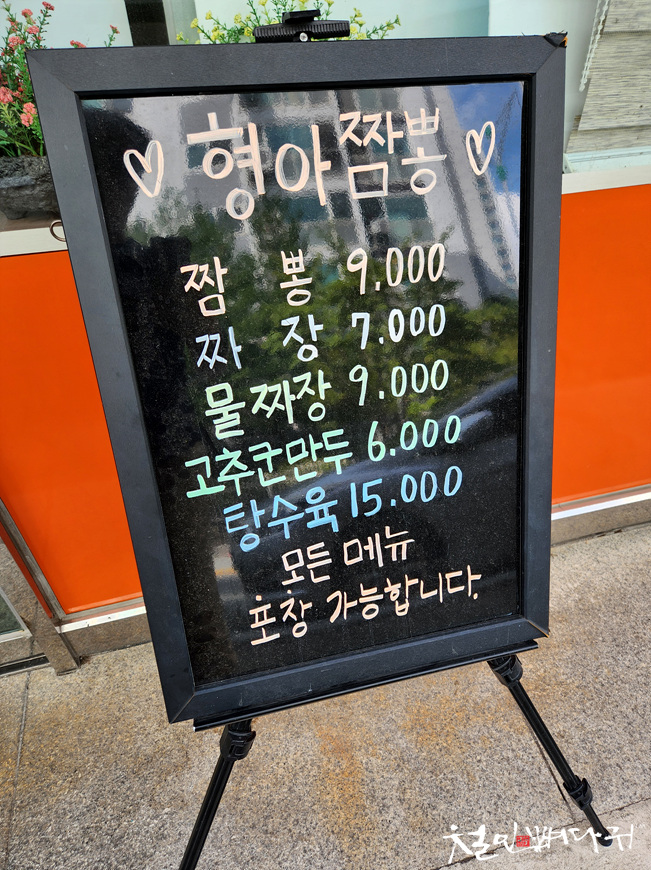 ♡ 형아짬뽕 ♡
짬 뽕 9.000
짜 장 7.000
물짜장 9.000
고추군만두 6.000
탕수육 15.000
모든 메뉴
포장 가능합니다.